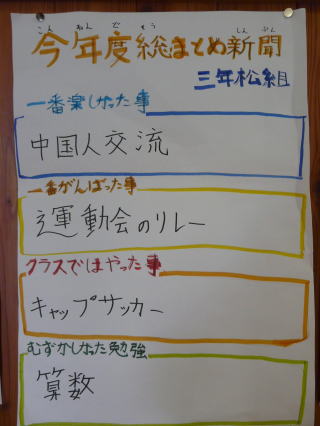 こんねんどそう しんぶん
今年度総まとめ新聞
三年松組
一番楽しかった事
中国人交流
一番がんばった事
運動会のリレー
クラスではやった事
キャップサッカー
むずかしかった勉強
算数